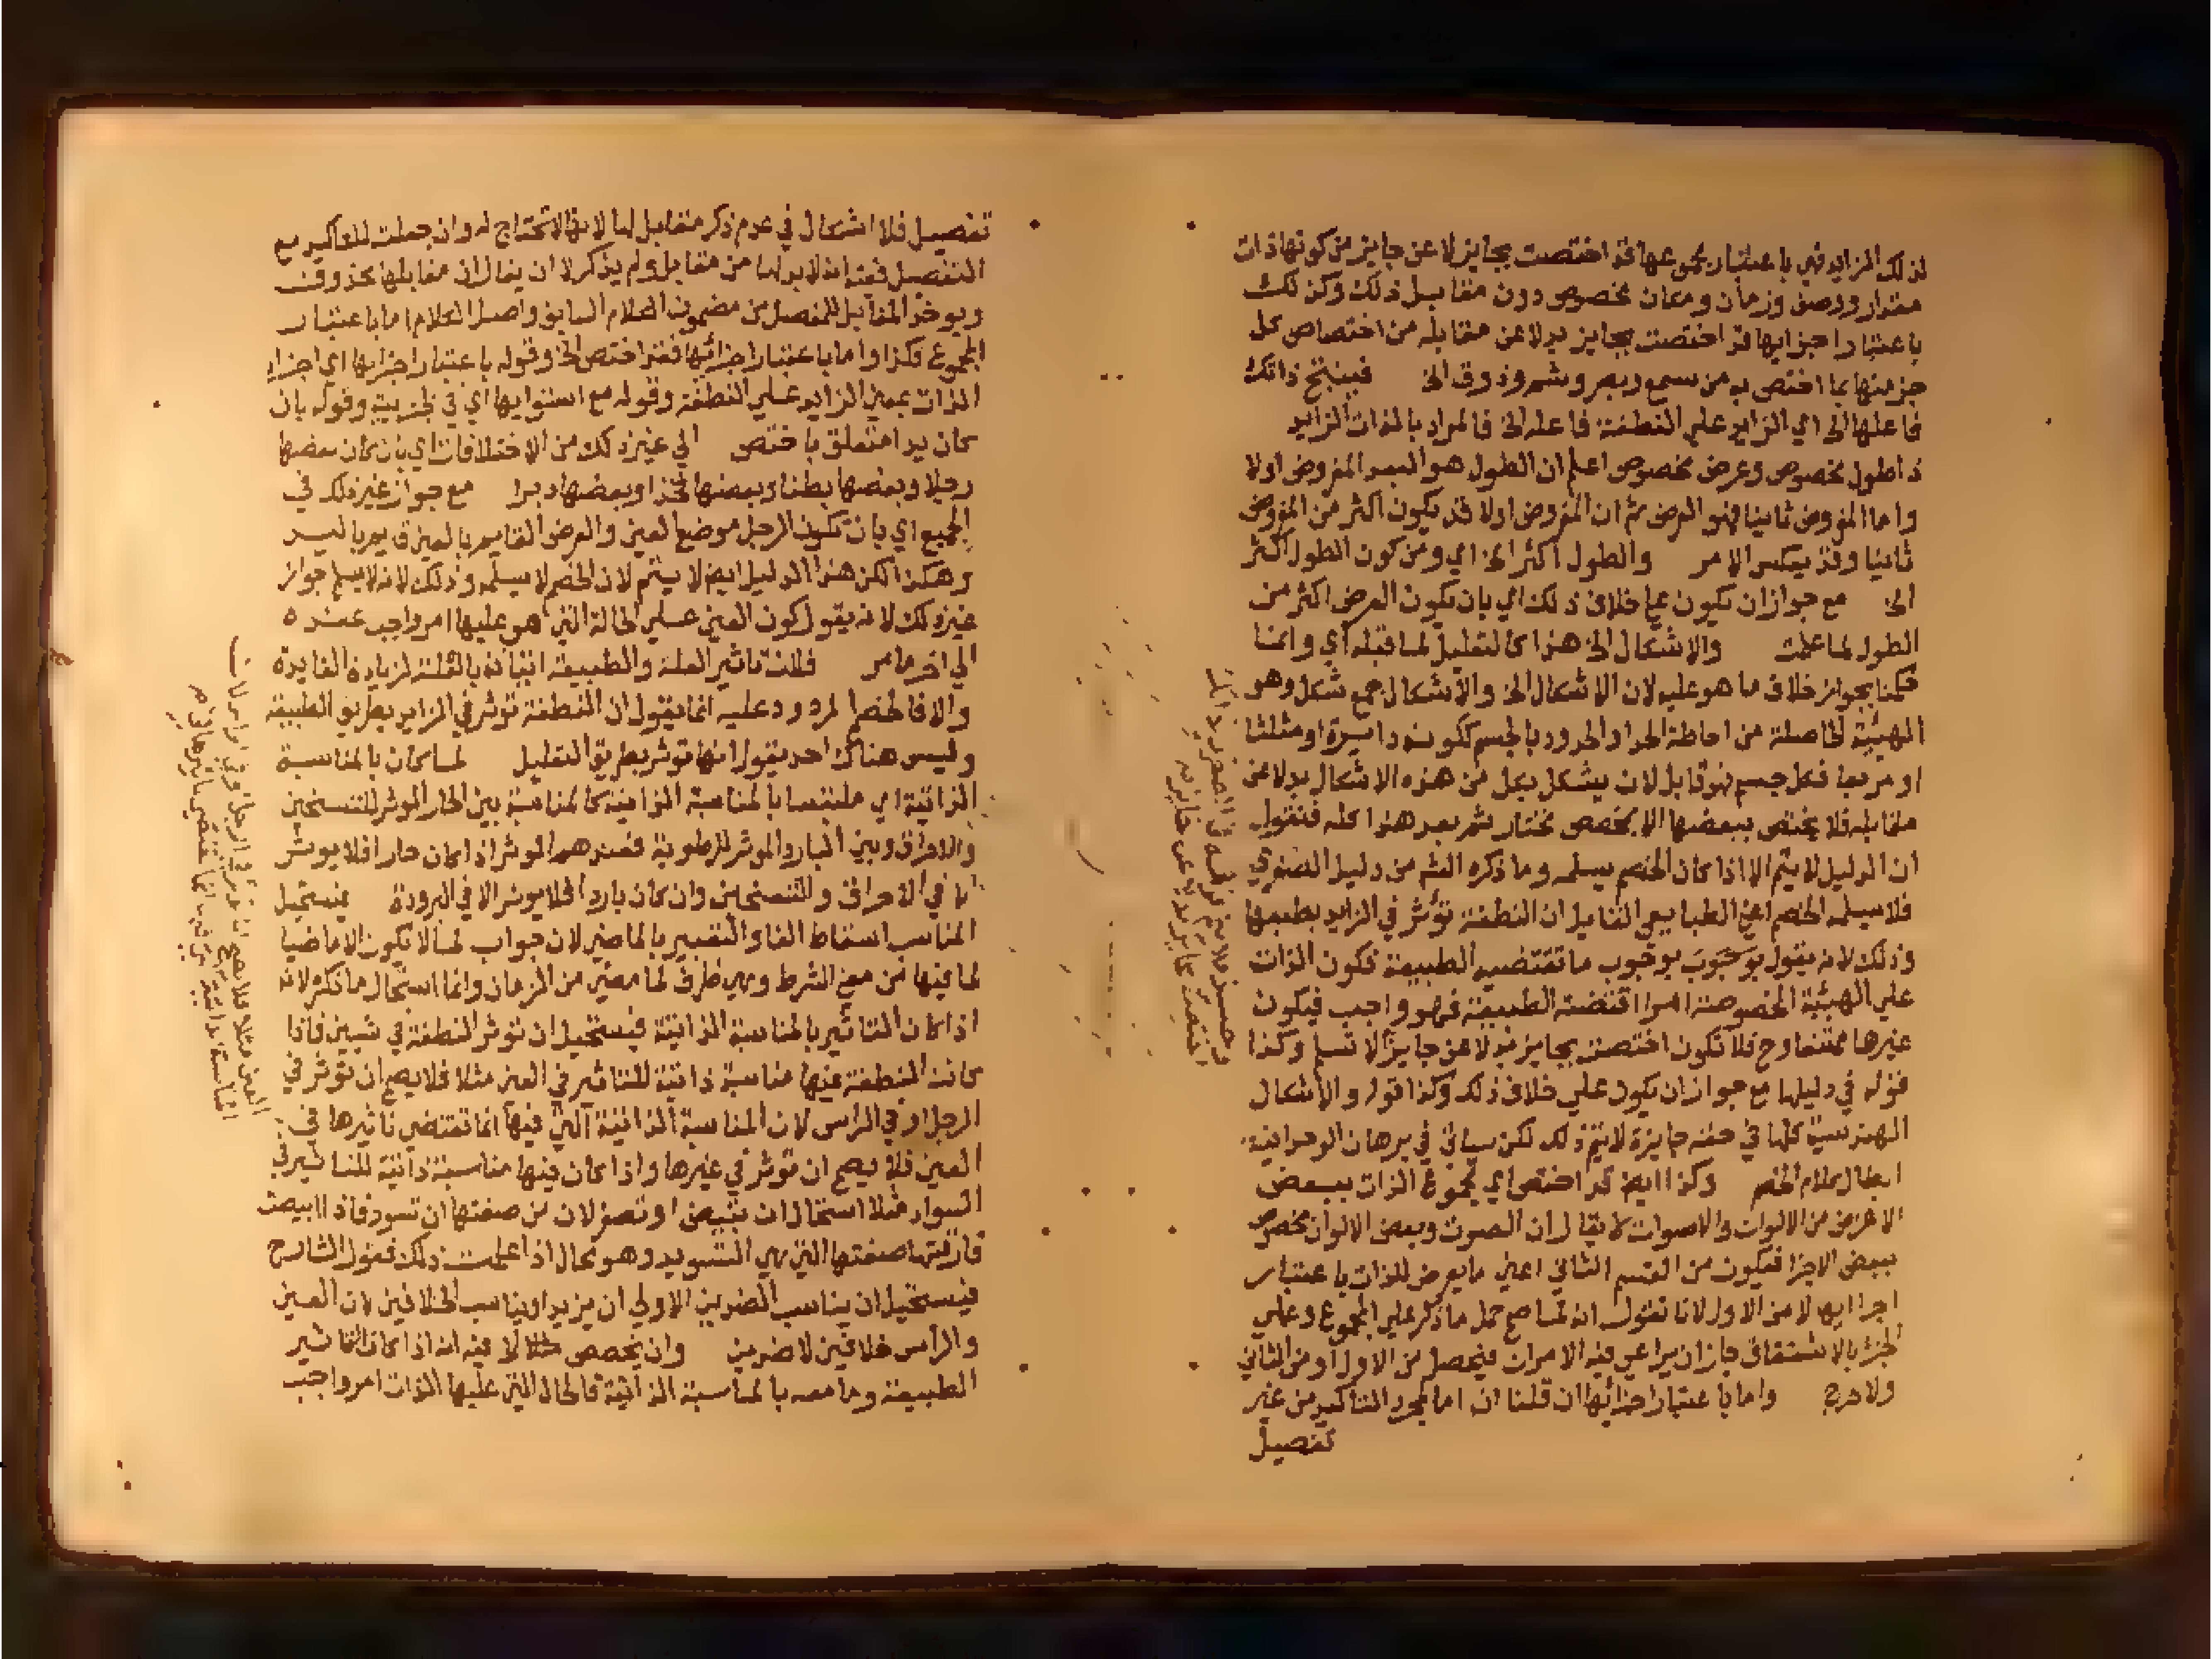 لذلك الزايد في باعتبار مجموعها قد اختصت بجايز لا عن جايز من كونها ذات
مقدار ووصف وزمان ومكان مخصوص دون مقابل ذلك وكذلك
باعتبار اجزايها قد اختصت بجايز بدلا عن مقابله من اختصاص كل
جزء منها بما اختص به من سمع وبصر وشم وذوق الخ فينتج ذلك
فاعلها الخ اي الزايد علي النطفة فاعله الخ فالمراد بالذات الزايد
ذا طول مخصوص وعرض مخصوص اعلم ان الطول هو البعد المفروض اولا
واما المفروض ثانيا فهو العرض ثم ان المفروض اولا قد يكون اكثر من المفروض
ثانيا وقد ينعكس الامر والطول اكثر الخ اي ومن كون الطول اكثر
الخ مع جواز ان يكون علي خلاف ذلك اي بان يكون العرض اكثر من
الطول لما علمت والاشكال الخ هذا كالتعليل لما قبله اي وانما
حكمنا بجواز خلاف ما هو عليه لان الاشكال الخ والاشكال جمع شكل وهو
الهيئة الحاصلة من احاطة الحد او الحدود بالجسم ككونه دايرة او مثلثا
او مربعا فكل جسم فهو قابل لان يتشكل بكل من هذه الاشكال بدلا عن
مقابله فلا يختص ببعضها الا بمخصص مختار ثم بعد هذا كله فنقول
ان الدليل لا يتم الا اذا كان الخصم يسلمه وما ذكره الش من دليل الصغري
فلا يسلمه الخصم اعني الطبايعي القايل ان النطفة تؤثر في الزايد بطبعها
وذلك لانه يقول بوجوب ما تقتضيه الطبيعة فكون الذات
علي الهيئة المخصوصة امرا اقتضته الطبيعة فهو واجب فيكون
غيرها ممتنعا وح فلا تكون اختصت بجايز بدلا عن جايز الا تسلم وكذا
قوله في دليلها مع جواز ان يكون علي خلاف ذلك وكذا قوله والاشكال
الهندسية كلها في حقه جايزة لا يتم ذلك لكن سياتي في برهان الوحدانية
ابطال كلام الخصم وكذا ايض قد اختص اي مجموع الذات ببعض
الاعراض من الالوان والاصوات لا يقال ان الصوت وبعض الالوان مخصوص
ببعض الاجزا فيكون من القسم الثاني اعني ما يعرض للذات باعتبار
اجزايها لا من الاول لانا نقول انه لما صح حمل ما ذكر علي المجموع وعلي
الجزء بالاشتقاق جاز ان يراعي فيه الامران فيحصل من الاول او من الثاني
ولا حرج واما باعتبار اجزائها ان قلنا ان اما لمجرد التاكيد من غير
تفصيل
تفصيل فلا اشكال في عدم ذكر مقابل لها لانها لا تحتاج له وان جعلت للتاكيد مع
التفصيل فقيه انه لا بد لها من مقابل ولم يذكر الا ان يقال ان مقابلها محذوف
ويوخذ المقابل للمفصل من مضمون الكلام السابق واصل الكلام اما باعتبار
المجموع فكذا واما باعتبار اجزائها فقد اختص الخ وقوله باعتبار اجزايها اي اجزاء
الذات بمعني الزايد علي النطفة وقوله مع استوايها اي في الجزيية وقوله بان
كان يدا متعلق باختص الي غير ذلك من الاختلافات اي بان كان بعضها
رجلا وبعضها بطنا وبعضها فخذا وبعضها دبرا مع جواز غير ذلك في
الجميع اي بان تكون الرجل موضع العين والعرض القايم بالعين قايم باليد
وهكذا لكن هذا الدليل ايض لا يتم لان الخصم لا يسلمه وذلك لانه لا يسلم جواز
غير ذلك لانه يقول كون العين علي الحالة التي هو عليها امر واجب عنده
الي اخر ما مر قلت تاثير العلة والطبيعة اتيانه بالعلة لزيادة الفايدة
والا فالخصم المردود عليه انما يقول ان النطفة توثر في الزايد بطريق الطبيعة
وليس هناك احد يقول انها توثر بطريق التعليل لما كان بالمناسبة
الذاتية اي ملتبسا بالمناسبة الذاتية كالمناسبة بين الحار الموثر للتسخين
والاحراق وبين البارد الموثر للرطوبة فعندهم الموثر اذا كان حارا فلا يوثر
الا في الاحراق والتسخين وان كان باردا فلا يوثر الا في البرودة فيستحيل
المناسب اسقاط الفا والتعبير بالماضي لان جواب لما لا يكون الا ماضيا
لما فيها من معني الشرط وهي ظرف لما مضي من الزمان وانما استحال ما ذكر لانه
اذا كان التاثير بالمناسبة الذاتية فيستحيل ان توثر النطفة في شيين فاذا
كانت النطفة فيها مناسبة ذاتية للتاثير في العين مثلا فلا يصح ان توثر في
الرجل او في الراس لان المناسبة الذاتية التي فيها انما تقتضي تاثيرها في
العين فلا يصح ان توثر في غيرها واذا كان فيها مناسبة ذاتية للتاثير في
السواد مثلا استحال ان تبيض او تصفر لان من صفتها ان تسود فاذا ابيضت
فارقتها صفتها التي هي التسويد وهو محال اذا علمت ذلك فقول الشارح
فيستحيل ان يناسب الضدين الاولي ان يزيد او يناسب الخلافين لان العين
والراس خلافين لا ضدين وان يخصص مثلا لا فيه انه اذا كان التاثير
الطبيعة وما معه بالمناسبة الذاتية فالحال التي عليها الذات امر واجب